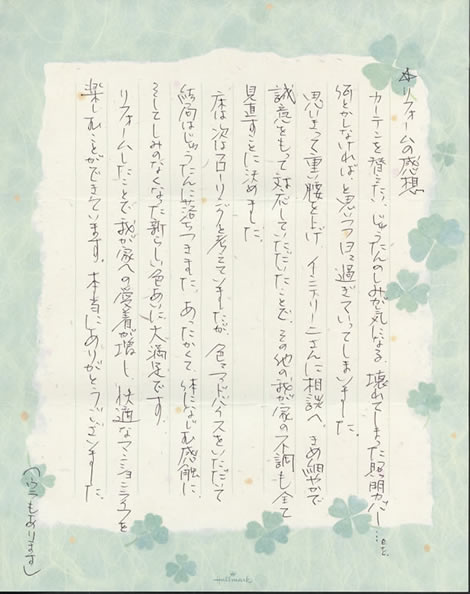 ☆リフォームの感想
カーテンを替えたい、じゅうたんのしみが気になる、壊れてしまった照明カバー…etc.
何とかしなければ、と思いつつ日々過ぎていってしまいました。
思いきって重い腰を上げ、インテリア ニさんに相談へ。きめ細やかで
誠意をもって対応していただいたことで、その他の我が家の不調も全て
見直すことに決めました。
床は次はフローリングと考えていましたが、色々アドバイスをいただいて
結局はじゅうたんに落ちつきました。あたたかくて、体になじむ感触に、
そしてしみのなくなった新らしい色あいに大満足です。
リフォームしたことで我が家への愛着が増し、快適なマンションライフを
楽しむことができています。本当にありがとうございました。
(ウラもあります)
Hallmark